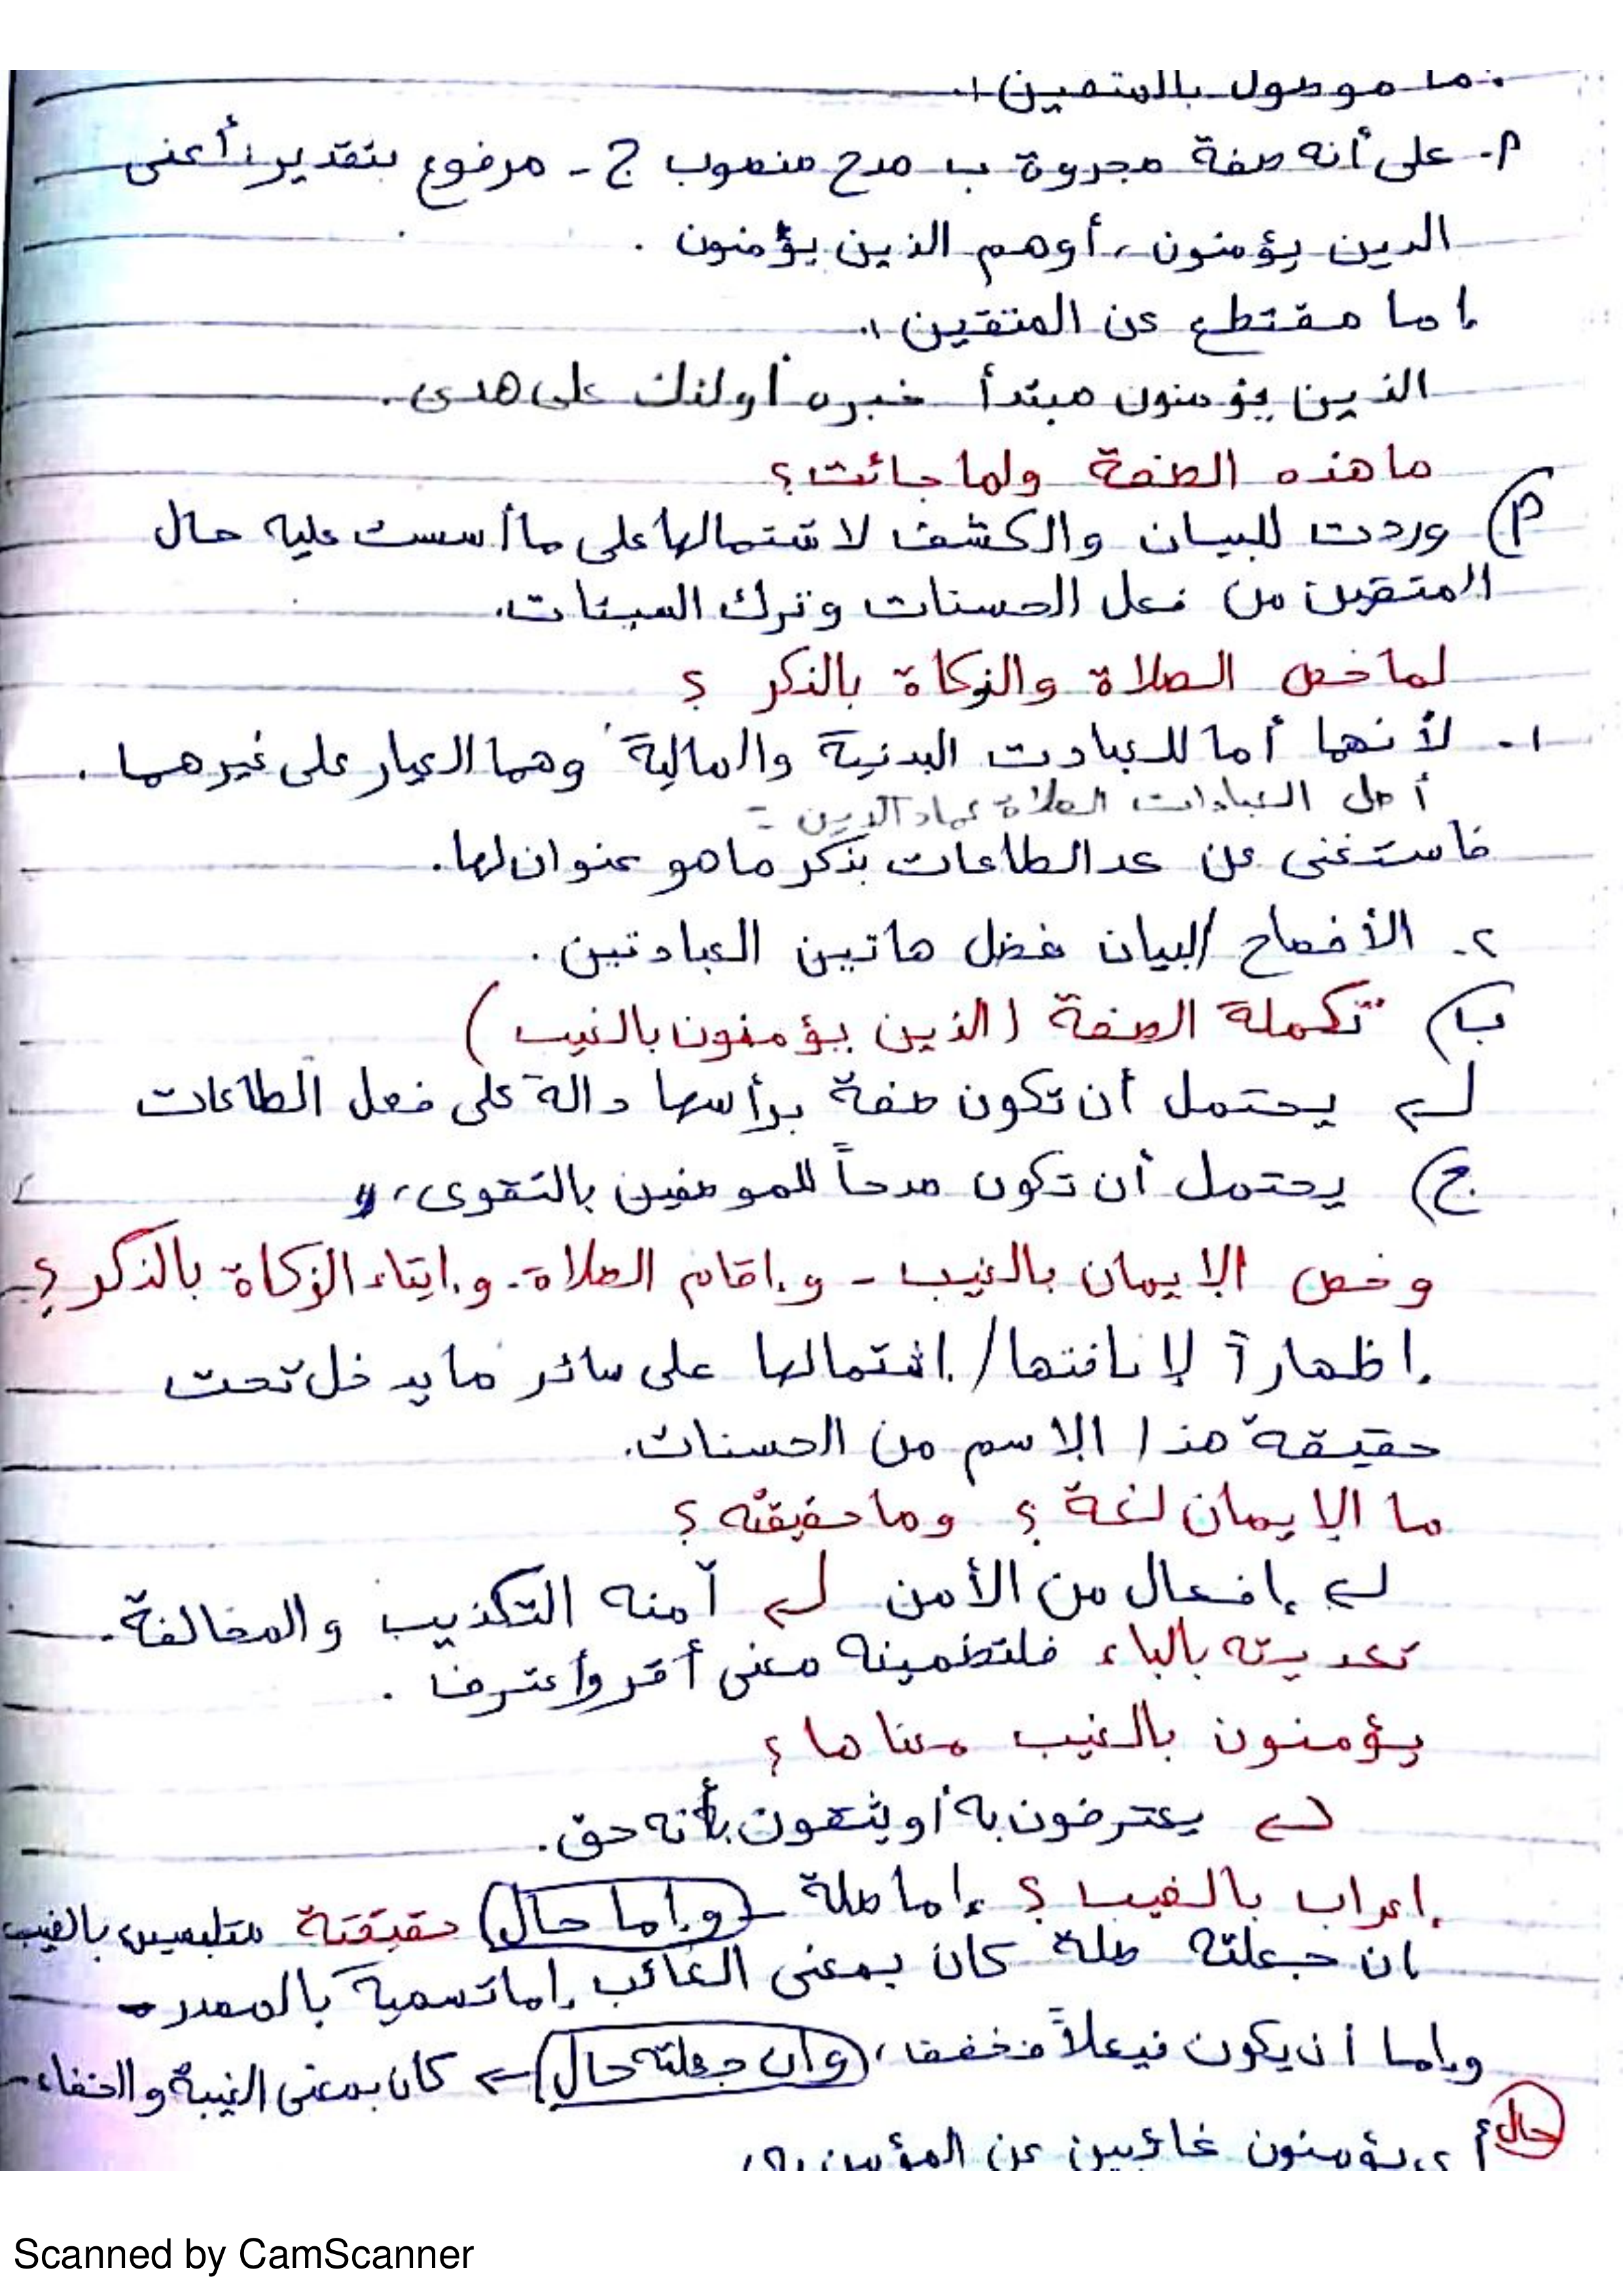 إما موصول بالمتقين ١.
م. على أنه صفة مجروة ب مدح منصوب ج - مرفوع بتقدير: أعنى
الدين يؤمنون، أوهم الذين يؤمنون .
إما مقتطع عن المتقين ١.
الذين يؤمنون مبتدأ خبره أولئك على هدى.
ما هذه الصفة ولما جائت؟
م) وردت للبيان والكشف لاشتمالها على ما أسست عليه حال
المتقين من فعل الحسنات وترك السيئات.
لما خص الصلاة والزكاة بالذكر ؟
١. لأنهما أما للعبادت البدنية والمالية وهما العيار على غيرهما .
أصل العبادات الصلاة عماد الدين =
فاستغنى عن عد الطاعات بذكر ما هو عنوان لها.
٢. الأفصاح / لبيان فضل هاتين العبادتين .
ب) تكملة الصفة (الذين يؤمنون بالغيب)
يحتمل أن تكون صفة برأسها دالة على فعل الطاعات
ج) يحتمل أن تكون مدحاً للموصفين بالتقوى،
وخص الإيمان بالغيب - وإقام الصلاة - وإيتاء الزكاة بالذكر؟
إظهاراً لإنافتها / إشتمالها على سائر ما يدخل تحت
حقيقة هذا الإسم من الحسنات.
ما الإيمان لغة ؟ وما حقيقته ؟
إفعال من الأمن آمنه التكذيب والمخالفة.
تعديته بالباء فلتضمينه معنى أقر وأعترف .
يؤمنون بالغيب معناها ؟
يعترفون به أو يثقون بأنه حق.
إعراب بالغيب ؟ إما صلة - وإما حال حقيقتة متلبسين بالغيب
إن جعلته صلة كان بمعنى الغائب إما تسمية بالمصدر -
وإما أن يكون فيعلاً فخفف، وان جعلته حال ← كان بمعنى الغيبة والخفاء -
حال أى يؤمنون غائبين عن المؤمن به
Scanned by CamScanner